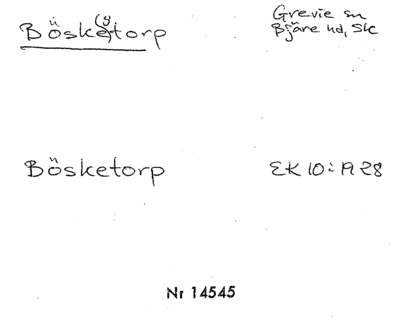 Bösketorp
ü (y)
Grevie sn
Bjäre hd, Sk
Bösketorp
EK 10:1928
Nr 14545